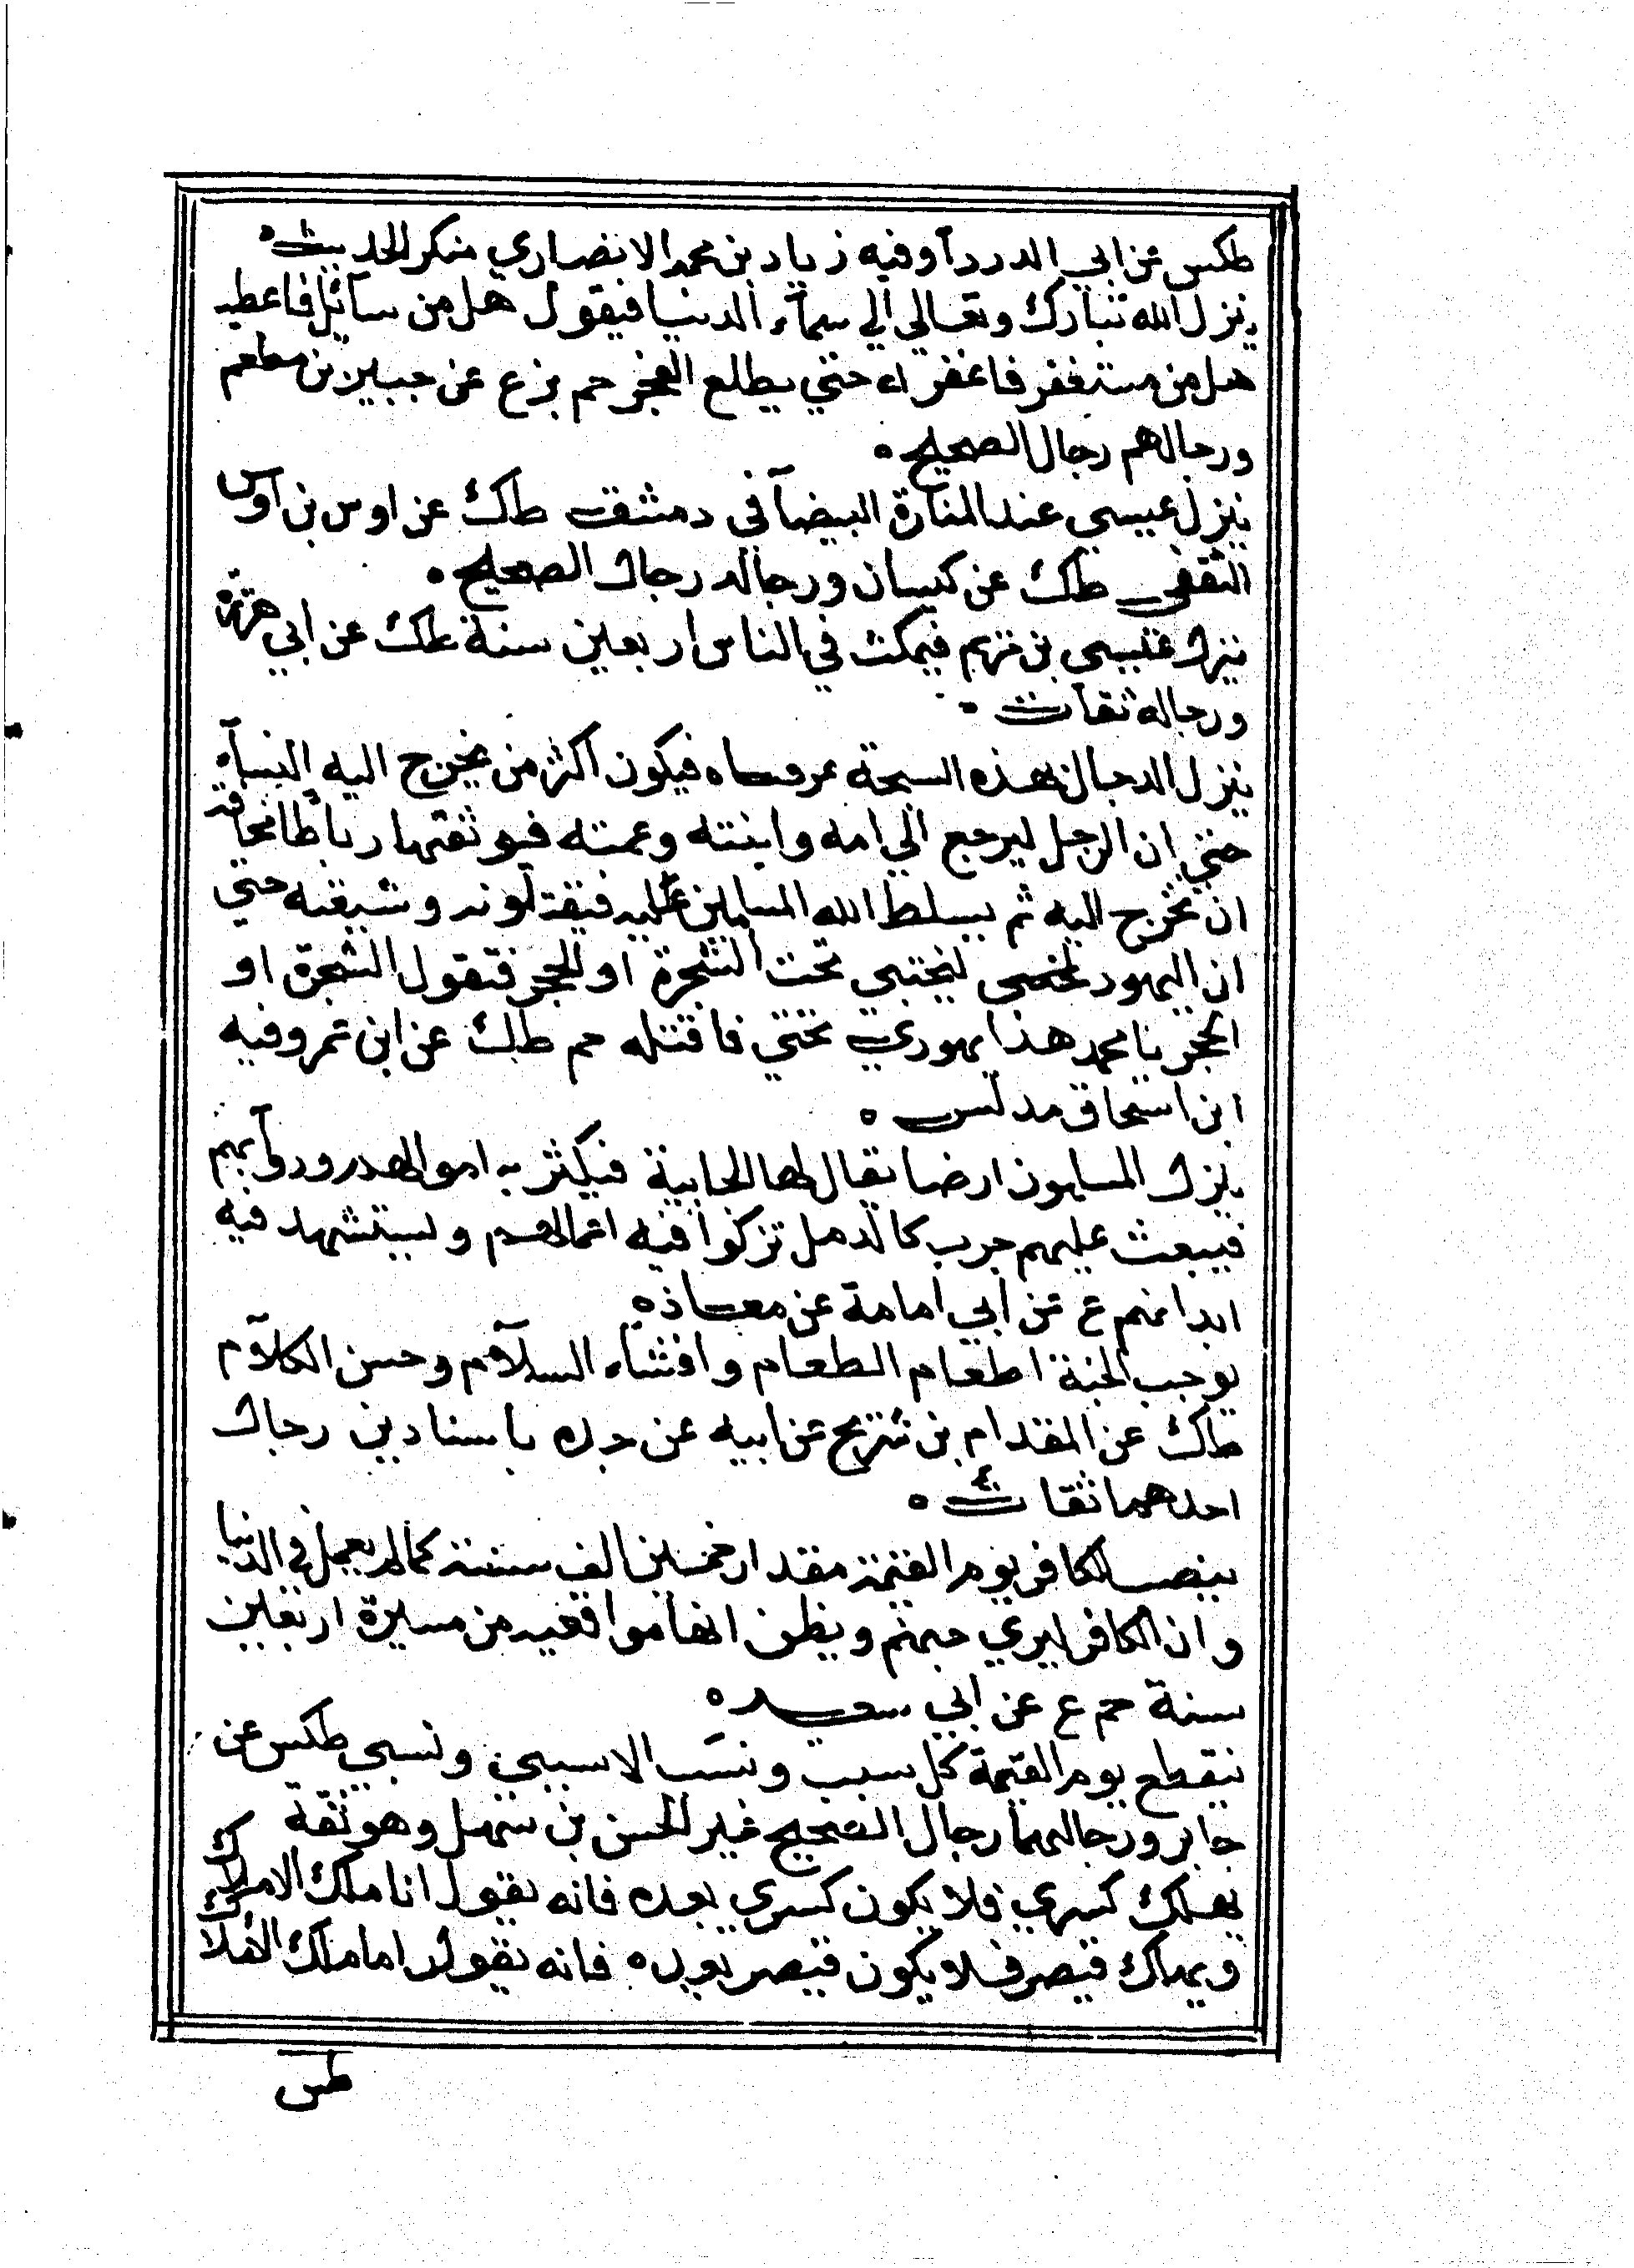 طكس عن ابي الدردآ وفيه زياد بن محمد الانصاري منكر الحديث ه
ينزل الله تبارك وتعالي الي سمآء الدنيا فيقول هل من سآئل فاعطيه
هل من مستغفر فاغفر له حتي يطلع الفجر حم بز ع عن جبير بن مطعم
ورجالهم رجال الصحيح ه
ينزل عيسي عند المنارة البيضآ في دمشق طك عن اوس بن اوس
الثقفي طك عن كيسان ورجاله رجال الصحيح ه
ينزل عيسي بن مريم فيمكث في الناس اربعين سنة طك عن ابي هريرة
ورجاله ثقات ه
ينزل الدجال بهذه السبحة فيكون اكثر من يخرج اليه النسآء
حتي ان الرجل ليرجع الي امه وابنته وعمته فيوثقها رباطا مخافة
ان تخرج اليه ثم يسلط الله المسلمين عليه فيقتلونه وشيعته حتي
ان اليهود ليختبي تحت الشجرة او الحجر فتقول الشجرة او
الحجر يا محمد هذا يهودي تحتي فاقتله حم طك عن ابن عمر وفيه
ابن اسحاق مدلس ه
ينزل المسلمون ارضا يقال لها الجابية فيكثر به اموالهم ودوآبهم
فيبعث عليهم جرب كالدمل تزكوا فيه اعمالهم ويستشهد فيه
ابدانهم ع عن ابي امامة عن معاذ ه
يوجب الجنة اطعام الطعام وافشآء السلآم وحسن الكلآم
طك عن المقدام بن شريح عن ابيه عن جده باسنادين رجال
احدهما ثقات ه
ينصب الكافر يوم القيمة مقدار خمسين الف سنة كما لم يعمل في الدنيا
وان الكافر ليري جهنم ويظن انها مواقعيه من مسيرة اربعين
سنة حم ع عن ابي سعيد ه
ينقطع يوم القيمة كل سبب ونسب الا سببي ونسبي طكس عن
جابر ورجالهما رجال الصحيح غير الحسن بن سهل وهو ثقة
يهلك كسري فلا يكون كسري بعده فانه يقول انا ملك الاملاك
ويهلك قيصر فلا يكون قيصر بعده فانه يقول انا ملك الاملاك
طس